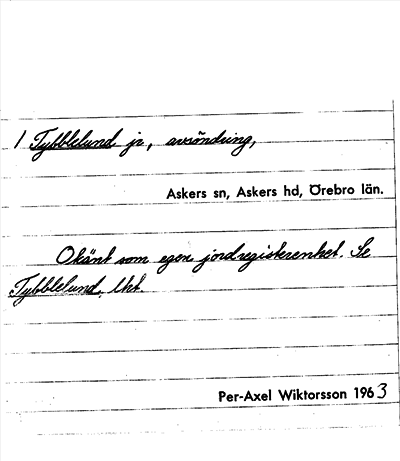 1 Tybblelund jr, avsöndring,
Askers sn, Askers hd, Örebro län.
Okänt som egen jordregisterenhet. Se
Tybblelund, lht.
Per-Axel Wiktorsson 1963